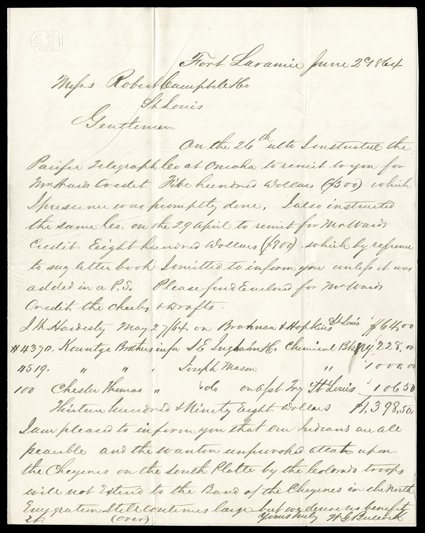 Fort Laramie June 2d 1864
Messrs Robert Campbell & Co
St Louis
Gentlemen
On the 26th ulto I instructed the
Pacific Telegraph Co at Omaha to remit to you for
Mr Wards Credit Five hundred dollars ($500) which
I presume was promptly done, I also instructed
the same Co. on the 29 April to remit for Mr Wards
Credit Eight hundred dollars ($800) which by reference
to my letter book I omitted to inform you unless it was
added in a P.S. Please find Enclosed for Mr Wards
Credit the checks & drafts.
J. W. Hardesty May 27/64 on & Hopkins St Louis $64.00
#4370. Kountze Brothers in fa S. E. & Co Chemical Bk NY 228.00
4519. " " " Joseph Mason " 1000.00
100 Chester Thomas " do on St Louis 106.50
Thirteen hundred & Ninety Eight dollars $1,398.50
I am pleased to inform you that our Indians are all
peacible and the wanton unprovoked attack upon
the Cheyenes on the South Platte by the Colorado troops
will not Extend to the Band of the Cheyenes in the North
Emygration Still continues large but we derive no benefit
(over) Yours truly W. G. Bullock